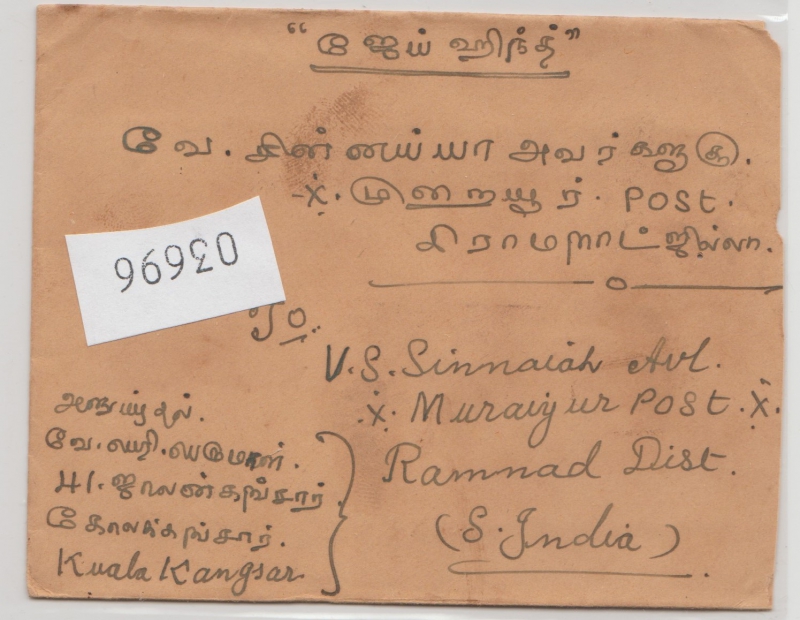 "ஜேய் ஹிந்த்"
வே. சின்னய்யா அவர்களுக்கு.
X. முறையூர். POST.
ராமநாட் ஜில்லா.
03696
To..
V.S. Sinnaiah Avl.
X. Muraiyur POST. X.
Ramnad Dist.
(S. India)
வே. பெருமாள்.
41. ஜாலன் கங்சார்
கோலக்கங்சார்.
Kuala Kangsar